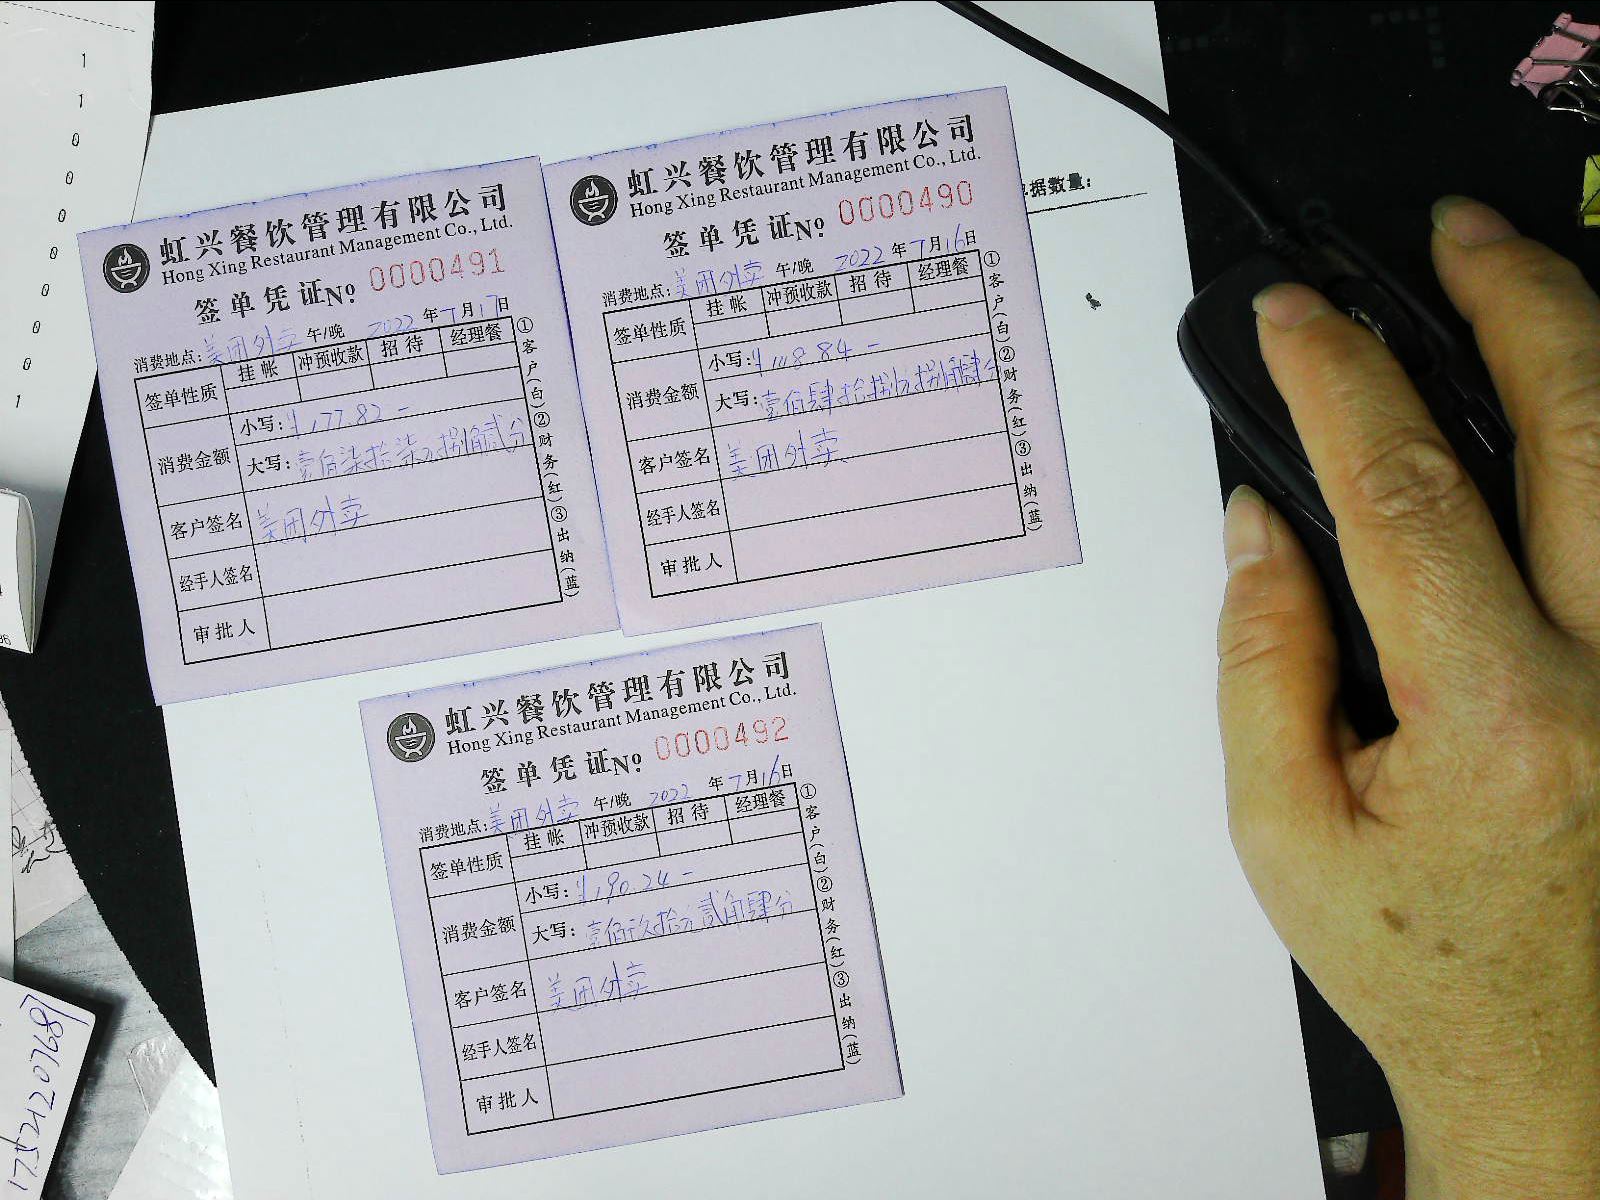 1
1
0
0
0
0
0
0
0
1
据数量:
虹兴餐饮管理有限公司
Hong Xing Restaurant Management Co., Ltd.
签单凭证No 0000491
消费地点:美团外卖 午/晚 2022 年 7 月 17 日
签单性质 挂帐 冲预收款 招待 经理餐
消费金额 小写:¥177.82-
大写:壹佰柒拾柒元捌角贰分
客户签名 美团外卖
经手人签名
审批人
①客户(白)②财务(红)③出纳(蓝)
虹兴餐饮管理有限公司
Hong Xing Restaurant Management Co., Ltd.
签单凭证No 0000490
消费地点:美团外卖 午/晚 2022 年 7 月 16 日
签单性质 挂帐 冲预收款 招待 经理餐
消费金额 小写:¥148.84-
大写:壹佰肆拾捌元捌角肆分
客户签名 美团外卖
经手人签名
审批人
①客户(白)②财务(红)③出纳(蓝)
虹兴餐饮管理有限公司
Hong Xing Restaurant Management Co., Ltd.
签单凭证No 0000492
消费地点:美团外卖 午/晚 2022 年 7 月 16 日
签单性质 挂帐 冲预收款 招待 经理餐
消费金额 小写:¥190.24-
大写:壹佰玖拾元贰角肆分
客户签名 美团外卖
经手人签名
审批人
①客户(白)②财务(红)③出纳(蓝)